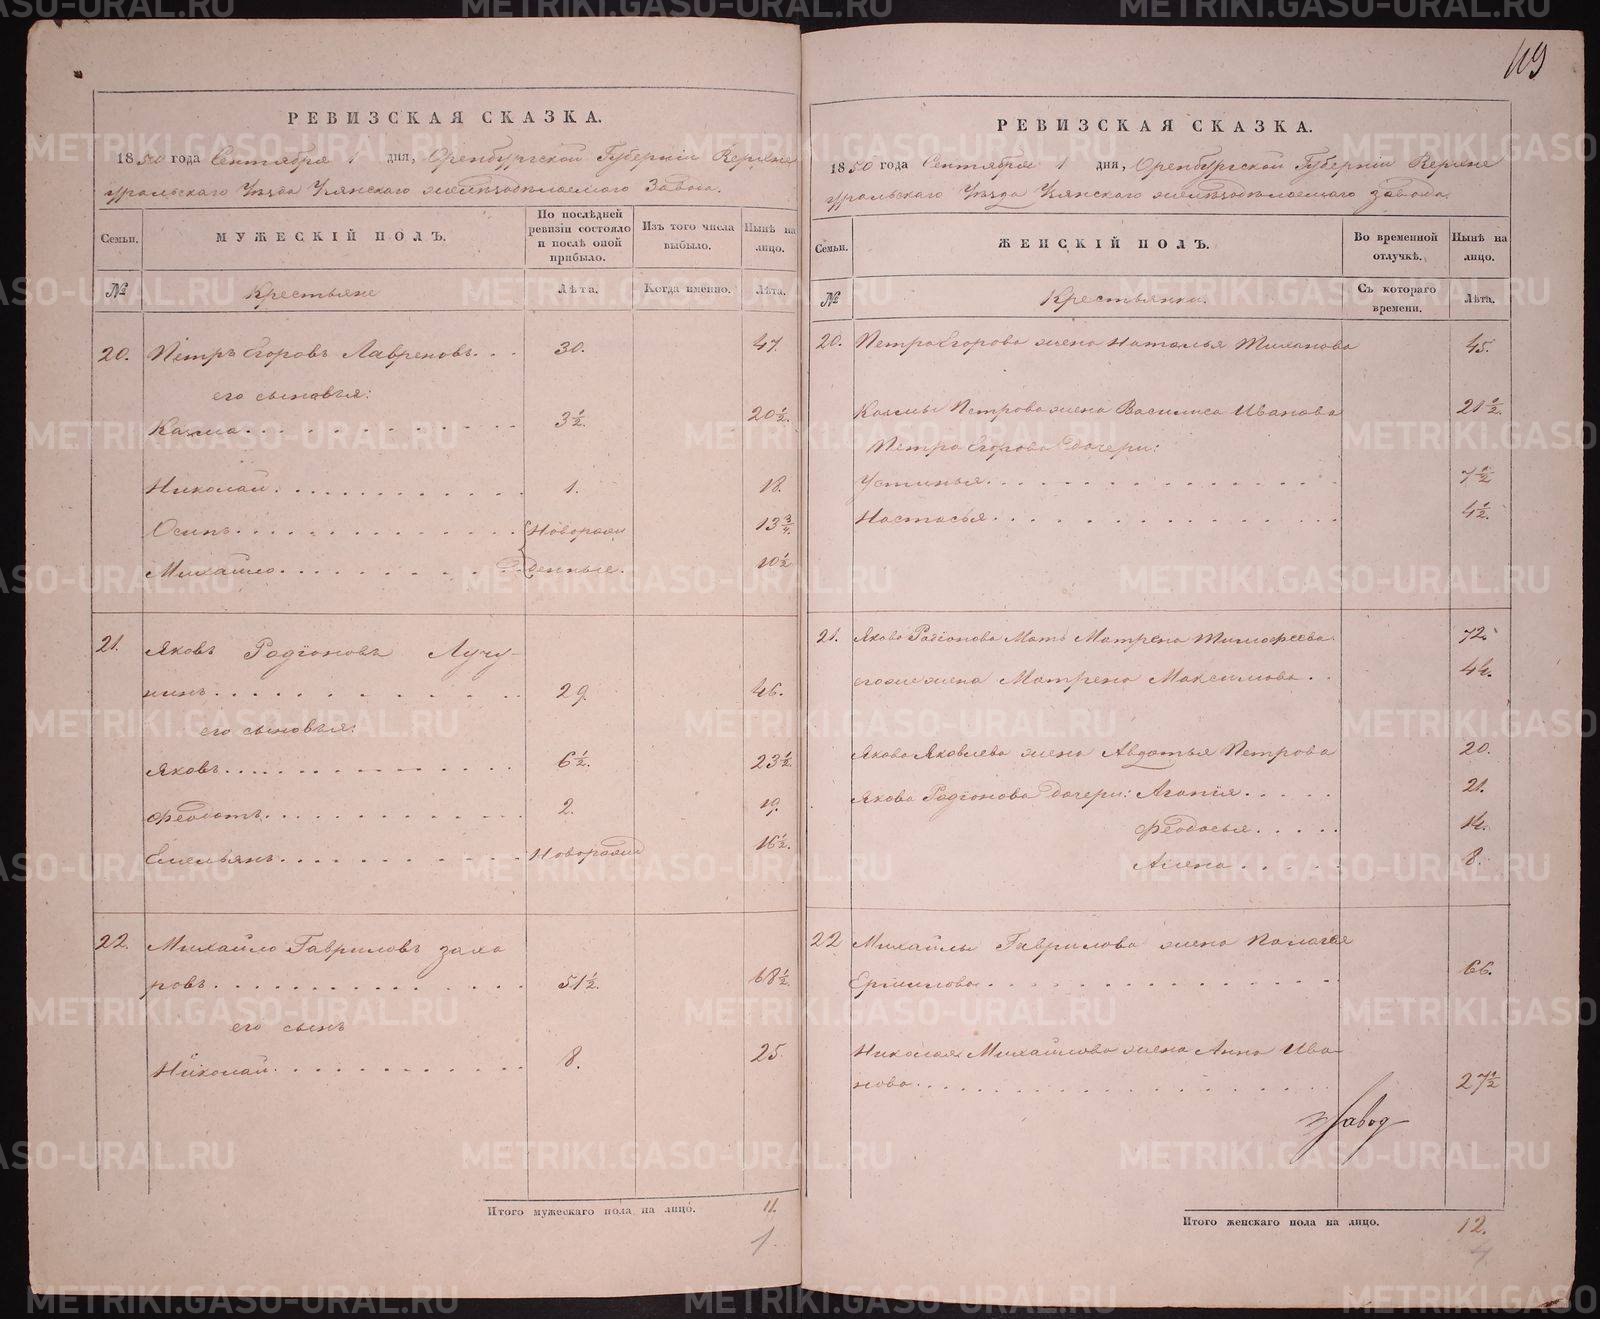 119
РЕВИЗСКАЯ СКАЗКА.
1850 года Сентября 1 дня, Оренбургской Губернiи Верхне
уральскаго Уѣзда Узянскаго желѣзодѣлаемаго Завода.
Семьи.
МУЖЕСКIЙ ПОЛЪ.
По послѣдней
ревизiи состояло
и послѣ оной
прибыло.
Изъ того числа
выбыло.
Нынѣ на
лицо.
№
Крестьяне
Лѣта.
Когда именно.
Лѣта.
20. Петръ Егоровъ Лавреновъ. 30. 47.
его сыновья:
Казма. 3½. 20½.
Николай. 1. 18.
Осипъ. Новорож 13¾.
Михайло. денные. 10½
21. Яковъ Родiоновъ Лучу-
нинъ. 29. 46.
его сыновья:
Яковъ. 6½. 23½.
Федотъ. 2. 19.
Емельянъ. Новорож 16½.
22. Михайло Гавриловъ Заха
ровъ. 51½. 68½.
его сынъ
Николай. 8. 25.
Итого мужескаго пола на лицо. 11.
1
РЕВИЗСКАЯ СКАЗКА.
1850 года Сентября 1 дня, Оренбургской Губернiи Верхне
уральскаго Уѣзда Узянскаго желѣзодѣлаемаго завода.
Семьи.
ЖЕНСКIЙ ПОЛЪ.
Во временной
отлучкѣ.
Нынѣ на
лицо.
№
Крестьянки.
Съ котораго
времени.
Лѣта.
20. Петра Егорова жена Наталья Тиханова 45.
Казмы Петрова жена Василиса Иванова 21½.
Петра Егорова дочери:
Устинья. 7½
Настасья. 4½.
21. Якова Родiонова Мать Матрена Тимофеева 72.
его же жена Матрена Максимова. 44.
Якова Яковлева жена Авдотья Петрова 20.
Якова Родiонова дочери: Агапiя. 21.
Федосья. 14.
Алена. 8.
22 Михайлы Гаврилова жена Палагея
Ермилова. 66.
Николая Михайлова жена Анна Ива-
нова. 27½
Завод
Итого женскаго пола на лицо. 12.
4
METRIKI.GASO-URAL.RU